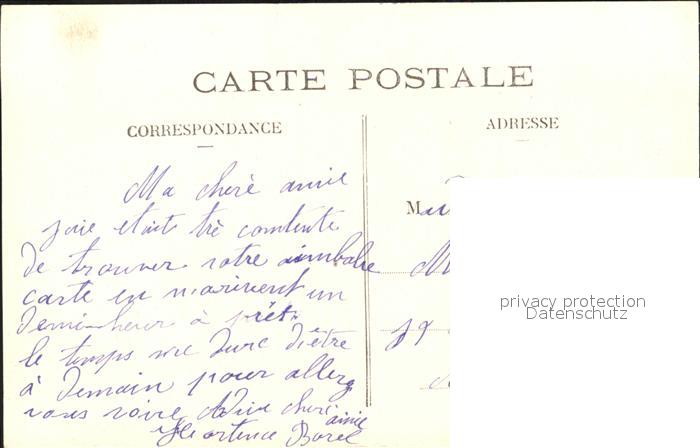 CARTE POSTALE
CORRESPONDANCE
ADRESSE
Ma cherè amie
jaie etait trè contente
de trouver votre aimbalre
carte en n'arivent un
Demi-heur à prèt.
le temps me dure d'être
à Demain pour allerz
vous voire Adieu cherè
amie
Hortence Borel
M
M
19
privacy protection
Datenschutz